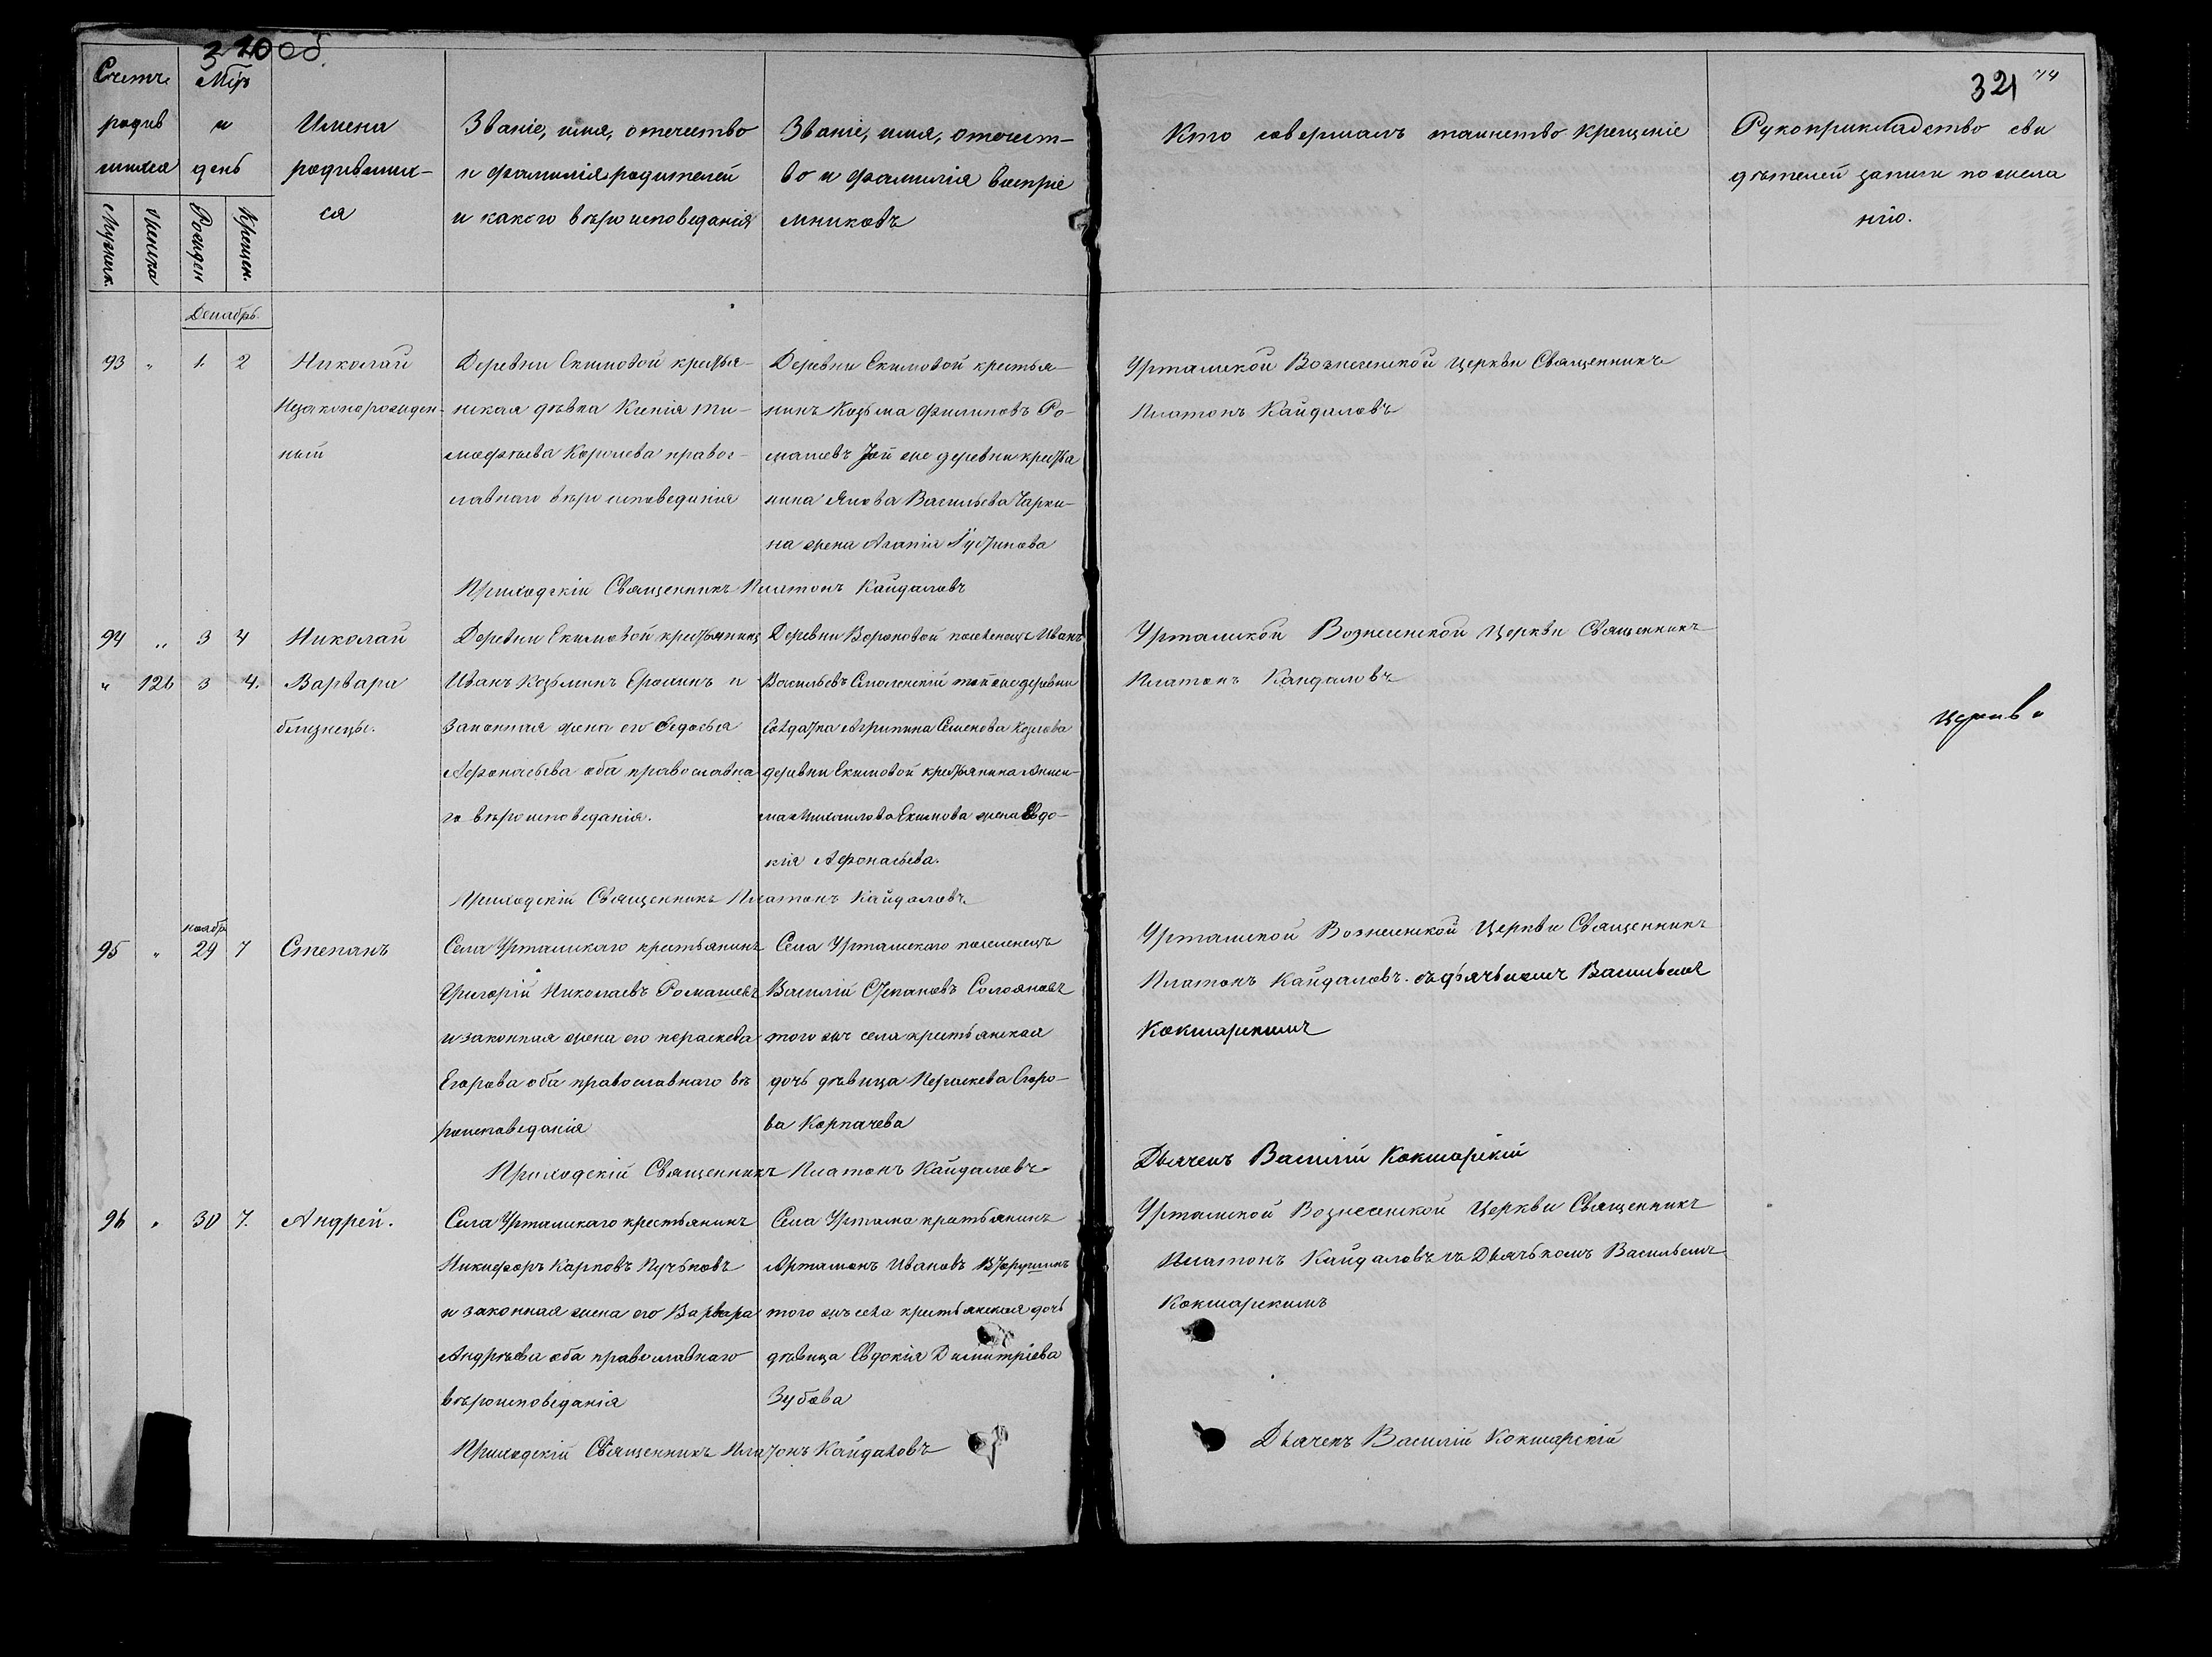 320 об.
321
74
Счетъ родив шихся
Мужеск.
Женска
Мѣр и день
Рожден
Крещен.
Имена родившихся
Званіе, имя, отечество и фамилія родителей и какого вѣроисповеданія
Званіе, имя, отечество и фамилія воспріемниковъ
Кто совершалъ таинство крещеніе
Рукоприкладство сви
дѣтелей записи по жела
нію.
Декабрь.
93 " 1. 2 Николай
Незаконорожден-
ный
Деревни Екимовой крестья-
нская дѣвка Ксенія Ти-
мофѣева Королева правос-
лавнаго вѣроисповеданія
Деревни Екимовой крестья-
нинъ Козьма Филиповъ Ро-
машевъ той же деревни крестья
нина Якова Васильева Чарки-
на жена Агапія
Уртамской Вознесенской Церкви Священникъ
Платонъ Кайдаловъ
Приходскій Священникъ Платонъ Кайдаловъ
94 " 3 4 Николай
" 126 3 4. Варвара
близнецы.
Деревни Екимовой крестьянинъ
Иванъ Козьминъ Ерошинъ и
Законная жена его Федосья
Афонасьева оба православна
го вѣроисповеданія.
Деревни Вороновой поселенецъ Иванъ
Васильевъ Смоленскій той же деревни
Солдатка Агрипина Семенова Козлова
деревни Екимовой крестьянина Аниси-
ма Михаилова Екимова жена Евдо-
кія Афонасьева.
Уртамской Вознесенской Церкви Священникъ
Платонъ Кайдаловъ
Приходскій Священникъ Платонъ Кайдаловъ
ноябр
95 " 29 7 Степанъ
Села Уртамскаго крестьянинъ
Григорій Николаевъ Ромашевъ
и законная жена его параскева
Егорова оба православнаго вѣ
роисповеданія
Села Уртамскаго поселенецъ
Василій Степановъ Солояновъ
того жъ села крестьянская
дочь дѣвица Параскева Егоро-
ва Корпачева
Уртамской Вознесенской Церкви Священникъ
Платонъ Кайдаловъ. съ дьячькомъ Васильемъ
Кокшарскимъ
Приходскій Священникъ Платонъ Кайдаловъ
Дьячекъ Василій Кокшарскій
96 " 30 7. Андрей.
Села Уртамскаго крестьянинъ
Никифоръ Карповъ Пучьковъ
и законная жена его Варвара
Андрѣева оба православнаго
вѣроисповеданія
Села Уртама кретьянинъ
Артамонъ Ивановъ
того жъ села кретьянская дочь
дѣвица Евдокія Димитріева
Зубова
Уртамской Вознесенской Церкви Священникъ
Платонъ Кайдаловъ съ Дьячькомъ Васильемъ
Кокшарскимъ
Приходскій Священникъ Платонъ Кайдаловъ
Дьячекъ Василій Кокшарскій